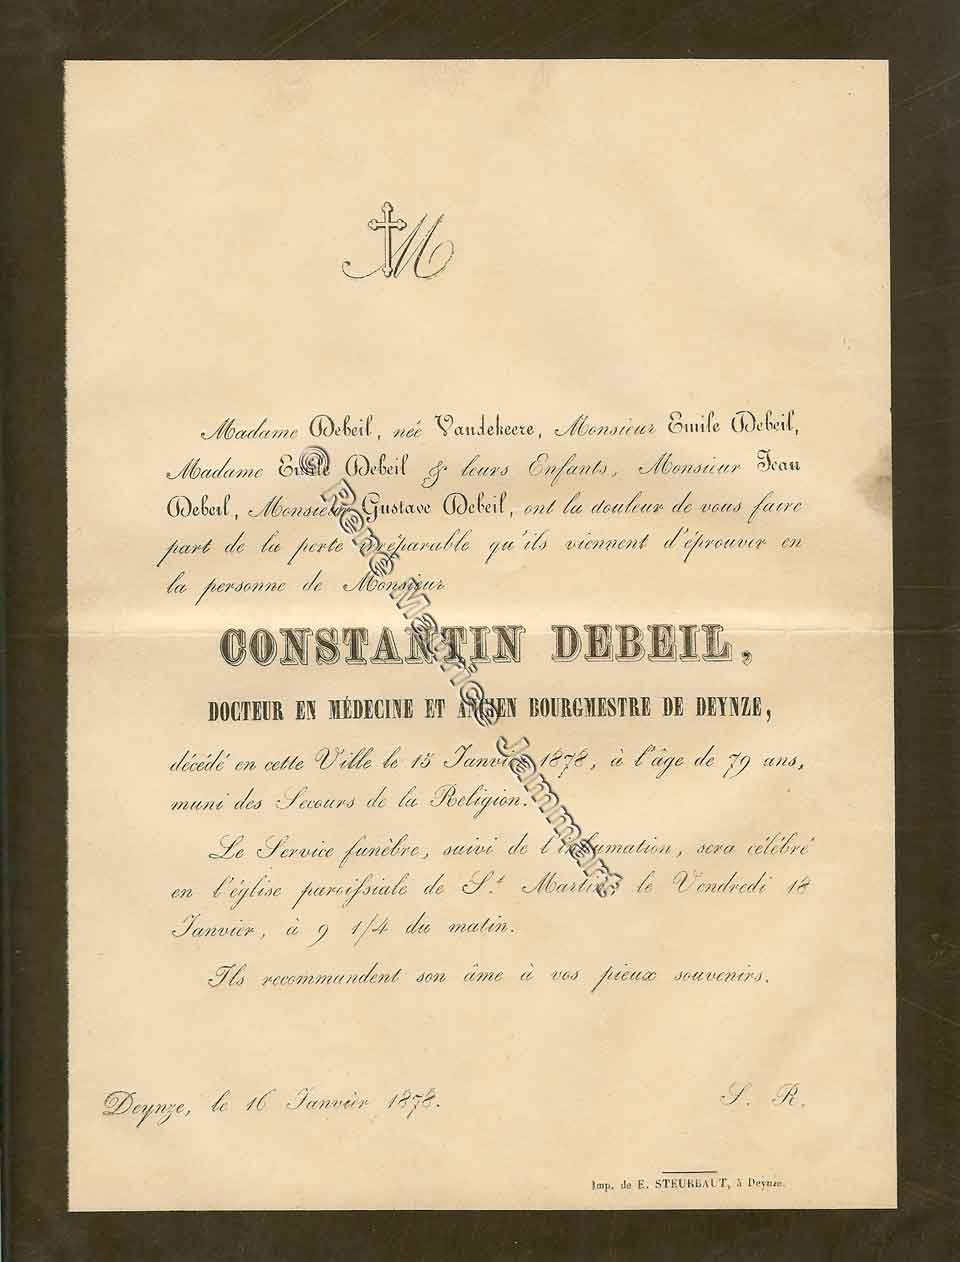 M
Madame Debeil, née Vandekeere, Monsieur Emile Debeil,
Madame Emile Debeil & leurs Enfants, Monsieur Jean
Debeil, Monsieur Gustave Debeil, ont la douleur de vous faire
part de la perte irréparable qu'ils viennent d'éprouver en
la personne de Monsieur
CONSTANTIN DEBEIL,
DOCTEUR EN MÉDECINE ET ANCIEN BOURGMESTRE DE DEYNZE,
décédé en cette Ville le 15 Janvier 1878, à l'âge de 79 ans,
muni des Secours de la Religion.
Le Service funèbre, suivi de l'inhumation, sera célébré
en l'église paroissiale de St Martin, le Vendredi 18
Janvier, à 9 1/4 du matin.
Ils recommandent son âme à vos pieux souvenirs.
Deynze, le 16 Janvier 1878.
S. R.
Imp. de E. STEURBAUT, à Deynze.
© René Maurice Jammart